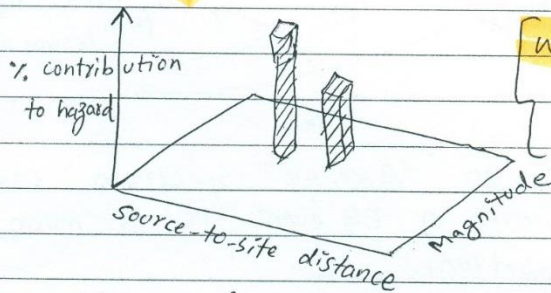 % contribution
to hazard
Source-to-site distance
Magnitude